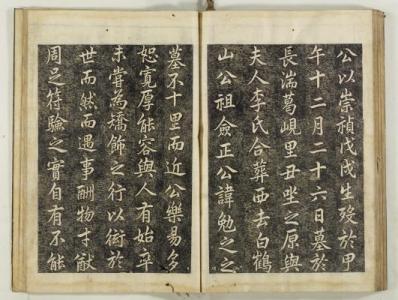 公以崇禎戊戌生歿於甲
午十二月二十六日墓於
長湍葛峴里丑坐之原與
夫人李氏合葬西去白鶴
山公祖僉正公諱勉之之
墓不十里而近公樂易多
恕寬厚能容與人有始卒
未嘗為矯飾之行以衒於
世而然而遇事酬物才猷
周足待驗之實自有不能